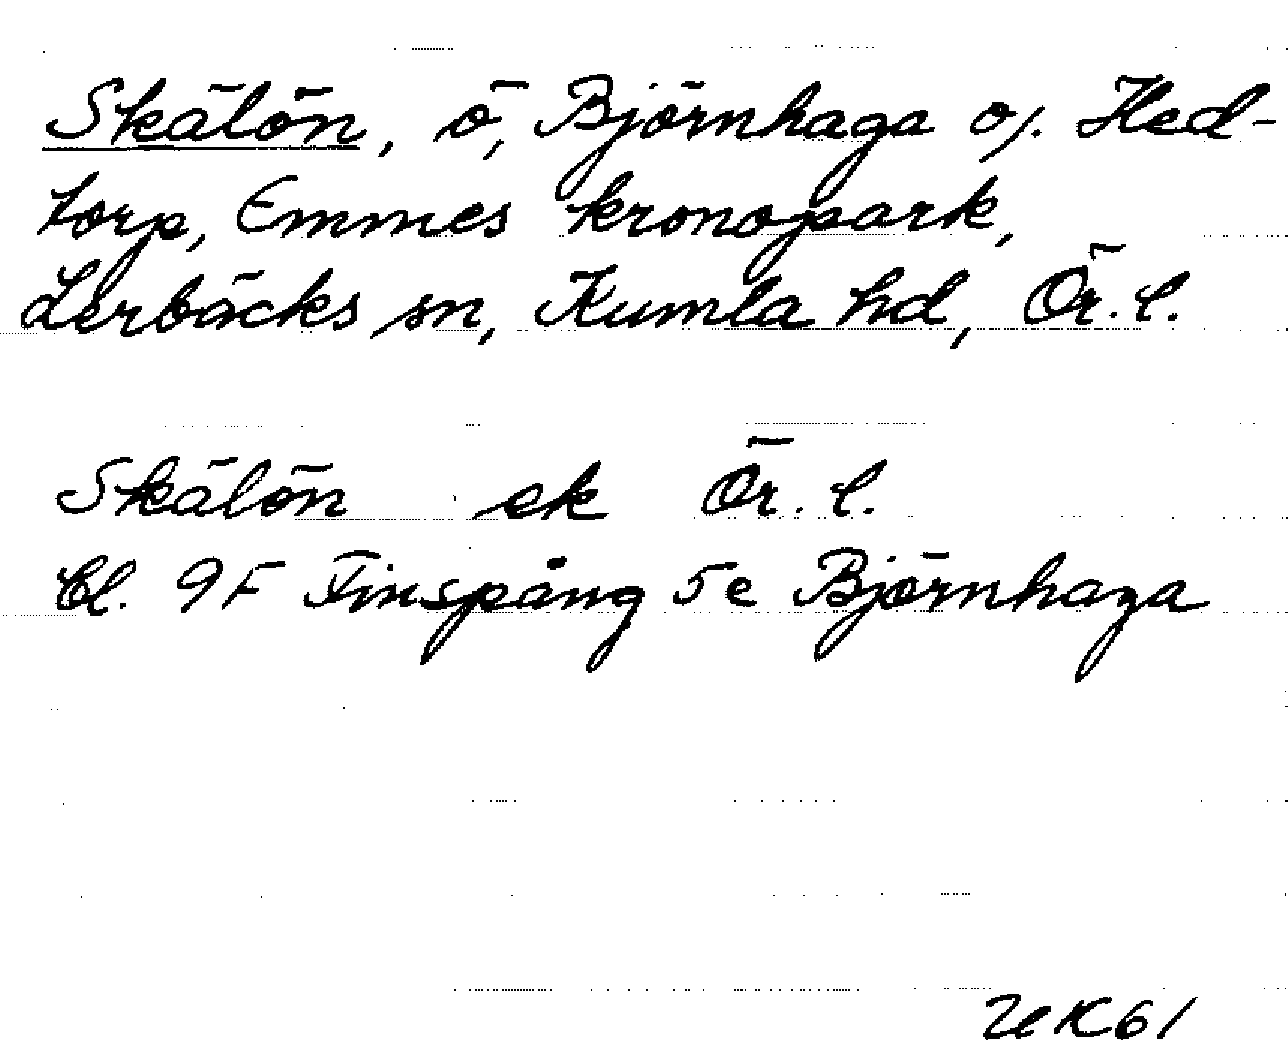 Skälön, ö, Björnhaga o/. Hed-
torp, Emmes kronopark,
Lerbäcks sn, Kumla hd, Ör. l.
Skälön ek Ör. l.
Bl. 9F Finspång 5e Björnhaga
UK61